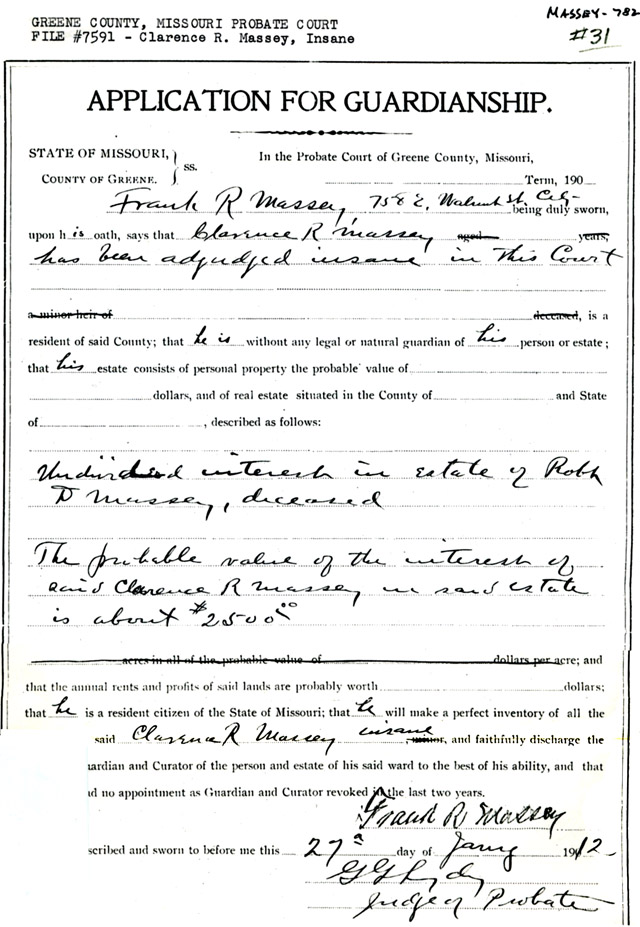 GREENE COUNTY, MISSOURI PROBATE COURT
FILE #7591 - Clarence R. Massey, Insane
MASSEY - 782
#31
APPLICATION FOR GUARDIANSHIP.
STATE OF MISSOURI,
COUNTY OF GREENE. } ss.
In the Probate Court of Greene County, Missouri,
Term, 190
Frank R Massey, 758 E. Walnut St. City being duly sworn,
upon his oath, says that Clarence R Massey aged years,
has been adjudged insane in this Court
a minor heir of deceased, is a
resident of said County; that he is without any legal or natural guardian of his person or estate;
that his estate consists of personal property the probable value of
dollars, and of real estate situated in the County of and State
of , described as follows:
Undivided interest in estate of Robt
D Massey, deceased
The probable value of the interest of
said Clarence R Massey in said estate
is about $2500.00
acres in all of the probable value of dollars per acre; and
that the annual rents and profits of said lands are probably worth dollars;
that he is a resident citizen of the State of Missouri; that he will make a perfect inventory of all the
said Clarence R Massey insane, minor, and faithfully discharge the
uardian and Curator of the person and estate of his said ward to the best of his ability, and that
d no appointment as Guardian and Curator revoked in the last two years.
Frank R Massey
scribed and sworn to before me this 27 day of Jany 1912
Judge of Probate